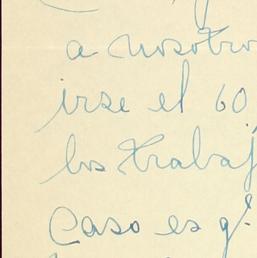 a nosotro
irse el 60
los trabaj
Caso es q!